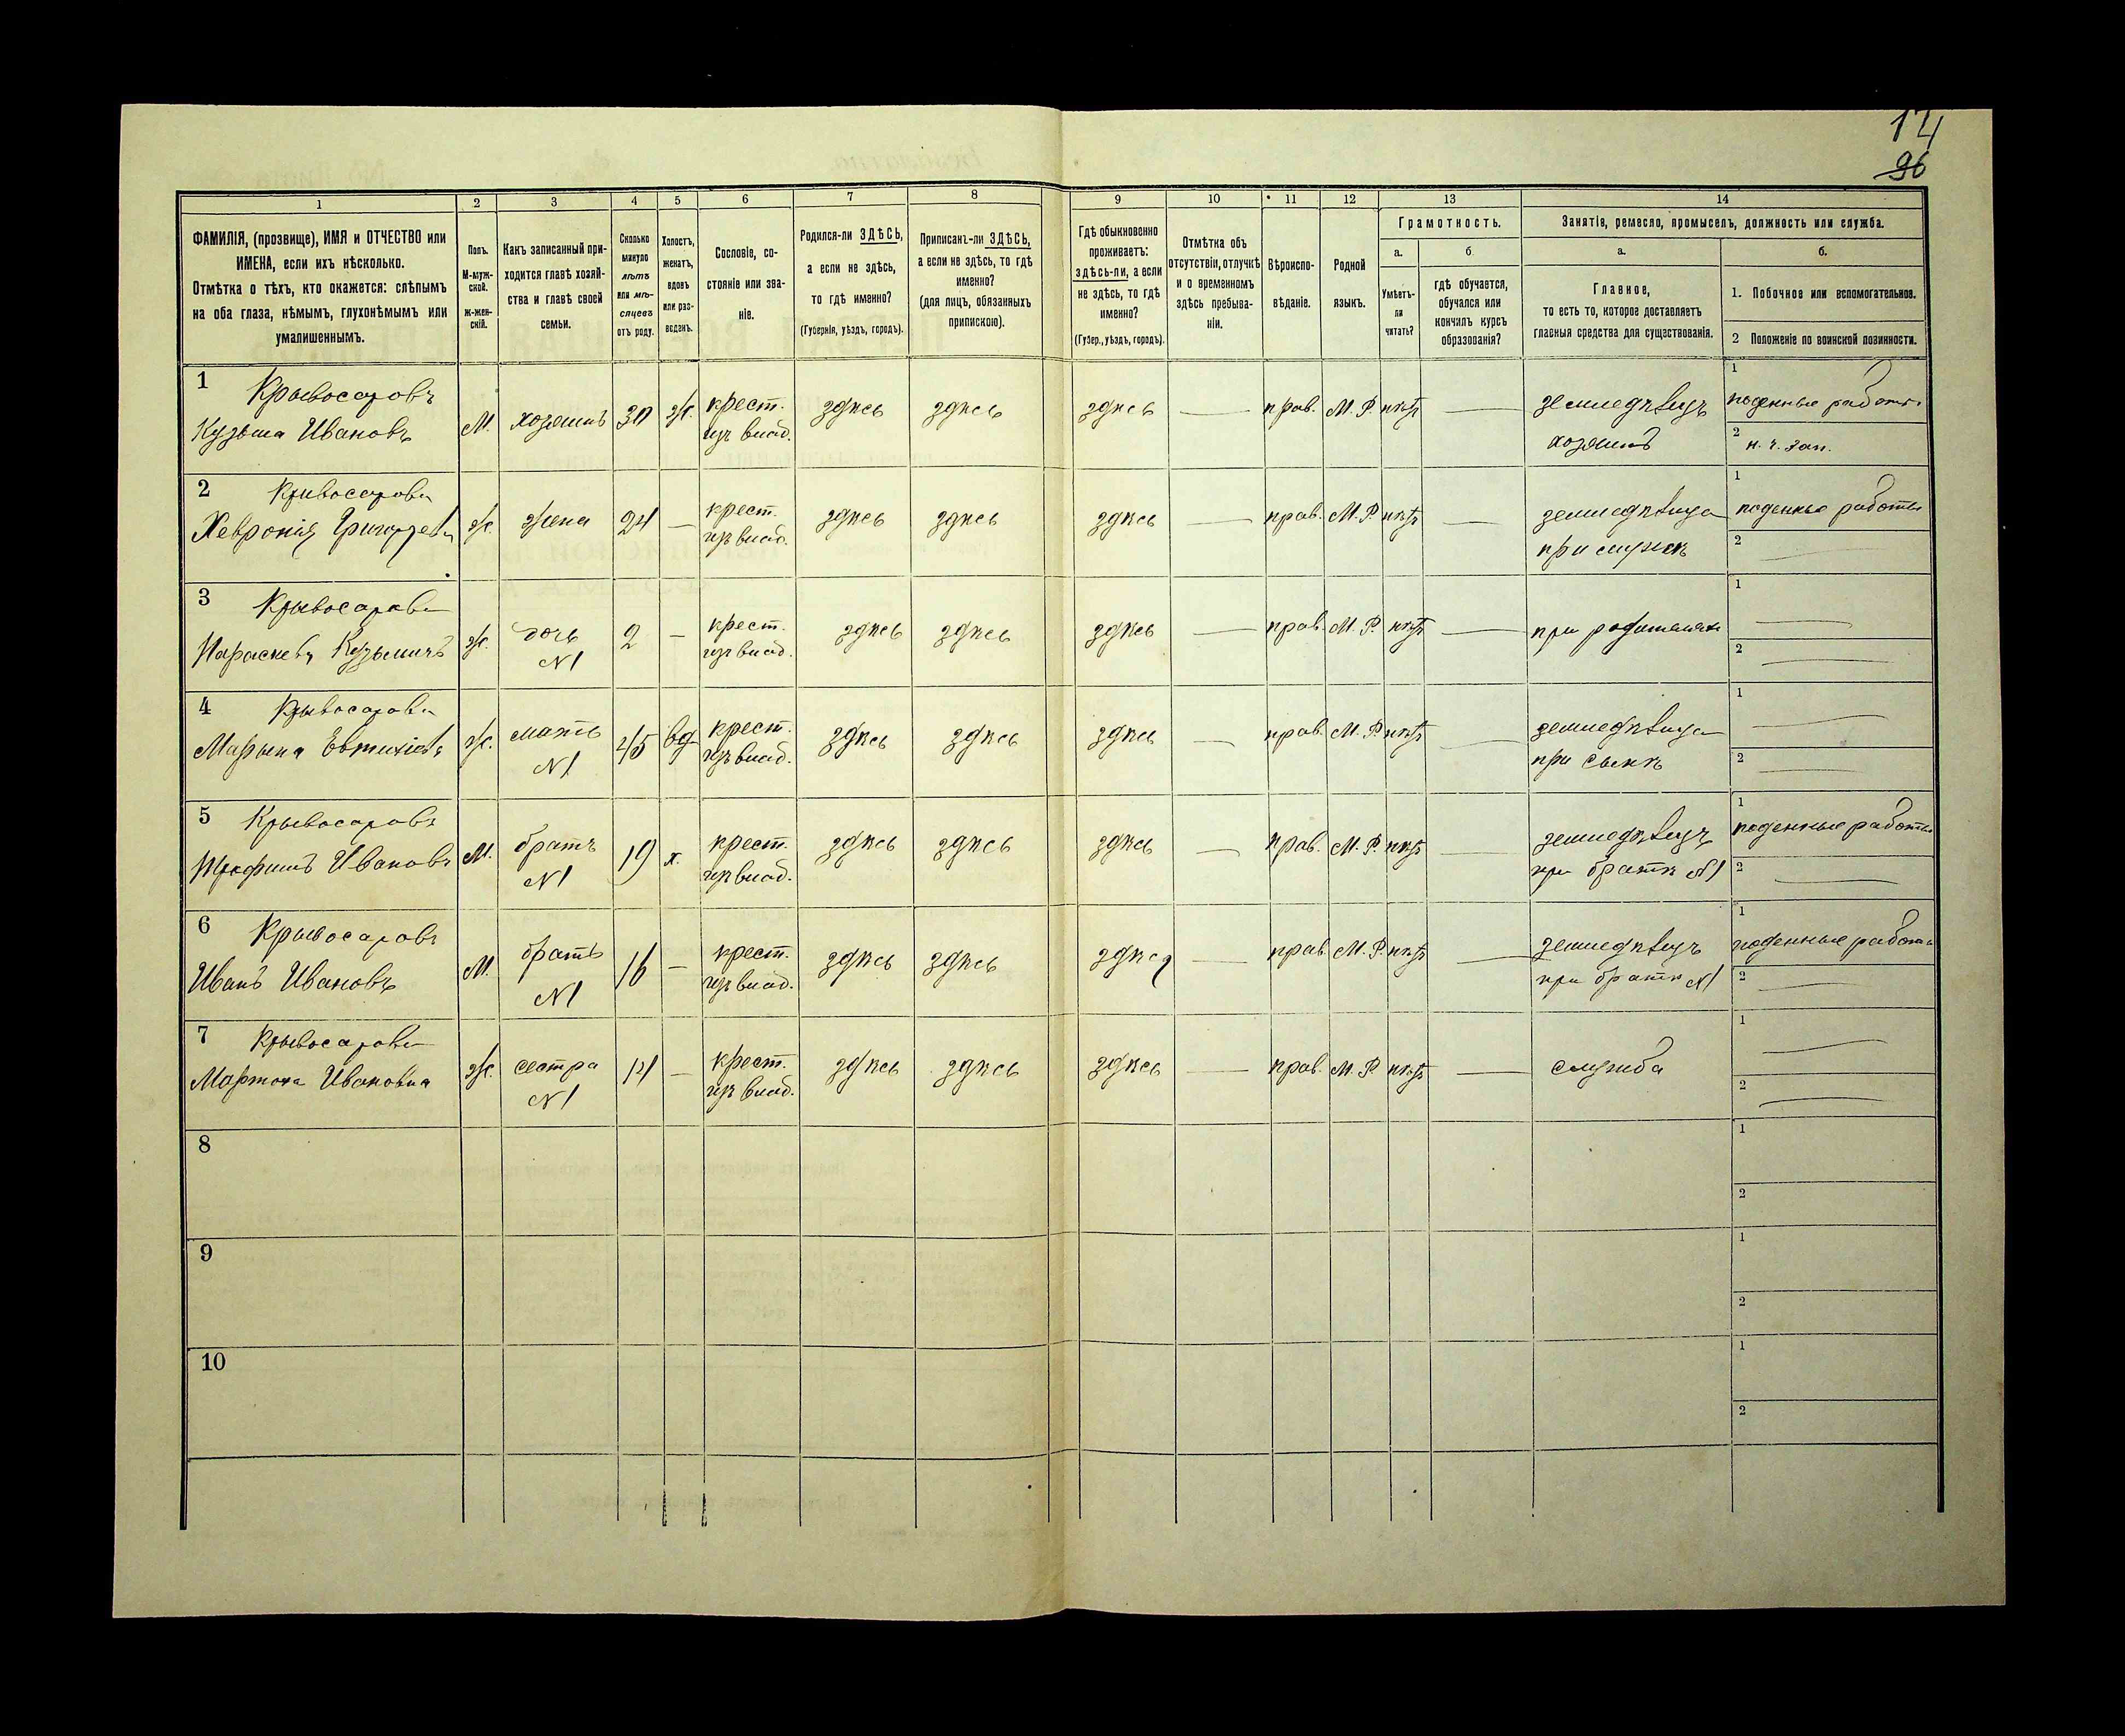 14
96
1
2
3
4
5
6
7
8
9
10
11
12
13
14
ФАМИЛІЯ, (прозвище), ИМЯ и ОТЧЕСТВО или
ИМЕНА, если ихъ нѣсколько.
Отмѣтка о тѣхъ, кто окажется: слѣпымъ
на оба глаза, нѣмымъ, глухонѣмымъ или
умалишеннымъ.
Полъ.
М-муж-
ской.
Ж-жен-
скій.
Какъ записанный при-
ходится главѣ хозяй-
ства и главѣ своей
семьи.
Сколько
минуло
лѣтъ
или мѣ-
сяцевъ
отъ роду.
Холостъ,
женатъ,
вдовъ
или раз-
веденъ.
Сословіе, со-
стояніе или зва-
ніе.
Родился-ли ЗДѢСЬ,
а если не здѣсь,
то гдѣ именно?
(Губернія, уѣздъ, городъ).
Приписанъ-ли ЗДѢСЬ,
а если не здѣсь, то гдѣ
именно?
(для лицъ, обязанныхъ
припискою).
Гдѣ обыкновенно
проживаетъ:
здѣсь-ли, а если
не здѣсь, то гдѣ
именно?
(Губер., уѣздъ, городъ).
Отмѣтка объ
отсутствіи, отлучкѣ
и о временномъ
здѣсь пребыва-
ніи.
Вѣроиспо-
вѣданіе.
Родной
языкъ.
Грамотность.
а.
Умѣетъ-
ли
читать?
б
гдѣ обучается,
обучался или
кончилъ курсъ
образованія?
Занятія, ремесло, промыселъ, должность или служба.
а.
Главное,
то есть то, которое доставляетъ
главныя средства для существованія.
б.
1. Побочное или вспомогательное.
2 Положеніе по воинской повинности.
1 Крывосаровъ
Кузьма Ивановъ
М. хозяинъ 30 ж. крест. изъ влад. здѣсь здѣсь здѣсь — прав. М. Р. нѣтъ —
земледѣлецъ
хозяинъ
1 поденные работы
2 н. ч. зап.
2 Крывосарова
Хевронія Григорьева
ж. жена 24 — крест. изъ влад. здѣсь здѣсь здѣсь — прав. М. Р. нѣтъ —
земледѣлица
при мужѣ
1 поденные работы
2 —
3 Крывосарова
Параскева
ж. дочь N1 2 — крест. изъ влад. здѣсь здѣсь здѣсь — прав. М. Р. нѣтъ —
при родителяхъ
1 —
2 —
4 Крывосарова
Марына
ж. мать N1 45 вд. крест. изъ влад. здѣсь здѣсь здѣсь — прав. М. Р. нѣтъ —
земледѣлица
при сынѣ
1 —
2 —
5 Крывосаровъ
Трофимъ Ивановъ
М. братъ N1 19 х. крест. изъ влад. здѣсь здѣсь здѣсь — прав. М. Р. нѣтъ —
земледѣлецъ
при братѣ N1
1 поденные работы
2 —
6 Крывосаровъ
Иванъ Ивановъ
М. братъ N1 16 — крест. изъ влад. здѣсь здѣсь здѣсь — прав. М. Р. нѣтъ —
земледѣлецъ
при братѣ N1
1 поденные работы
2 —
7 Крывосарова
Ивановна
ж. сестра N1 14 — крест. изъ влад. здѣсь здѣсь здѣсь — прав. М. Р. нѣтъ —
служба
1 —
2 —
8
1
2
9
1
2
10
1
2